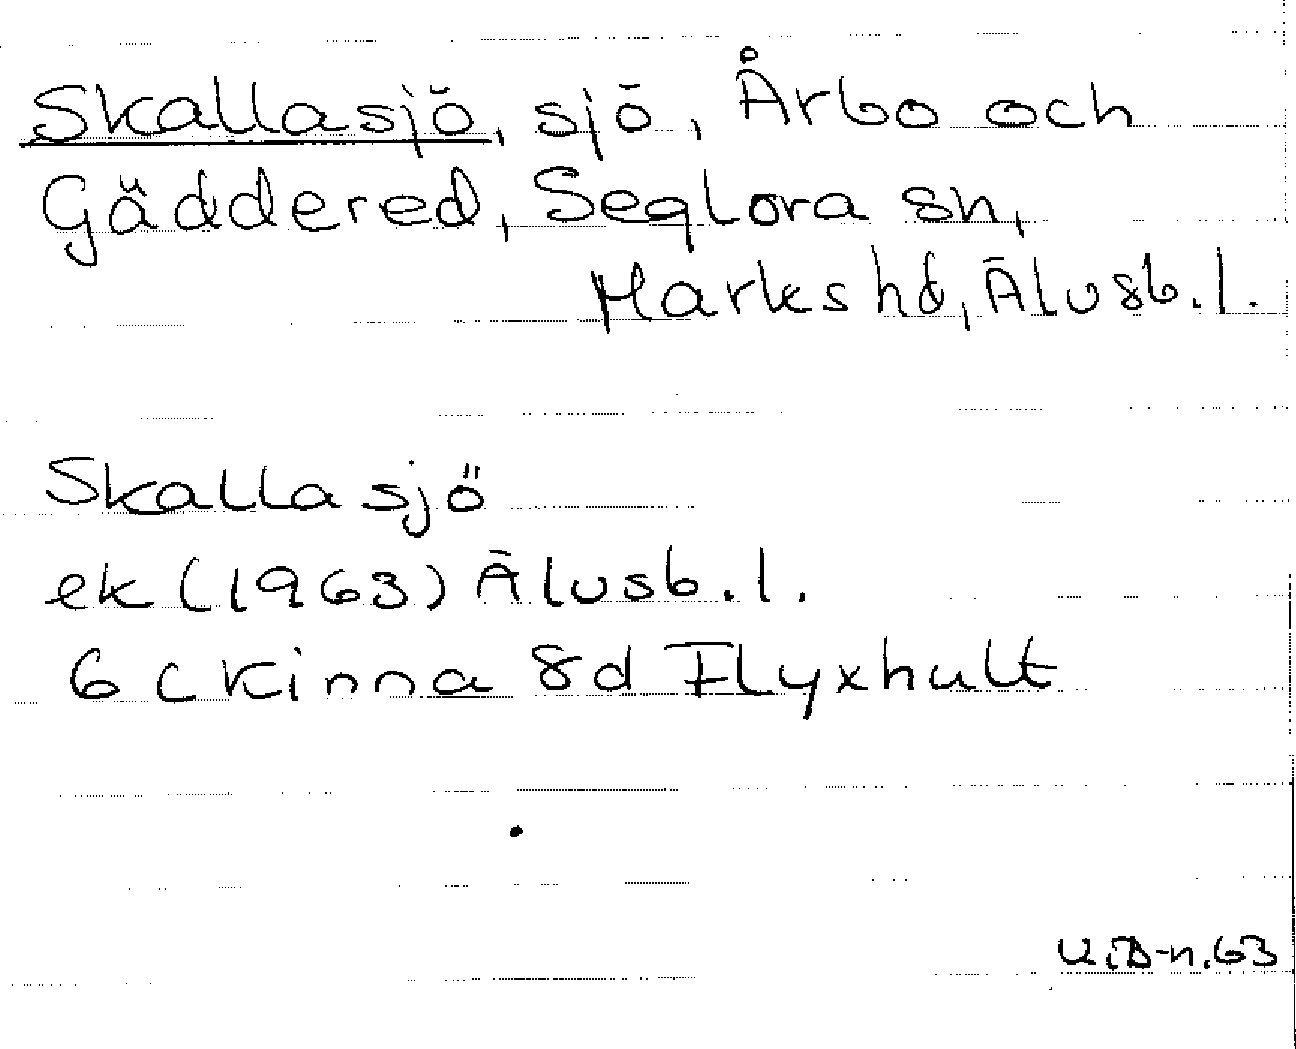 Skallasjö, sjö, Årbo och
Gäddered, Seglora sn,
Marks hd, Älvsb.l.
Skallasjö
ek (1963) Älvsb.l.
6 c Kinna 8d Flyxhult